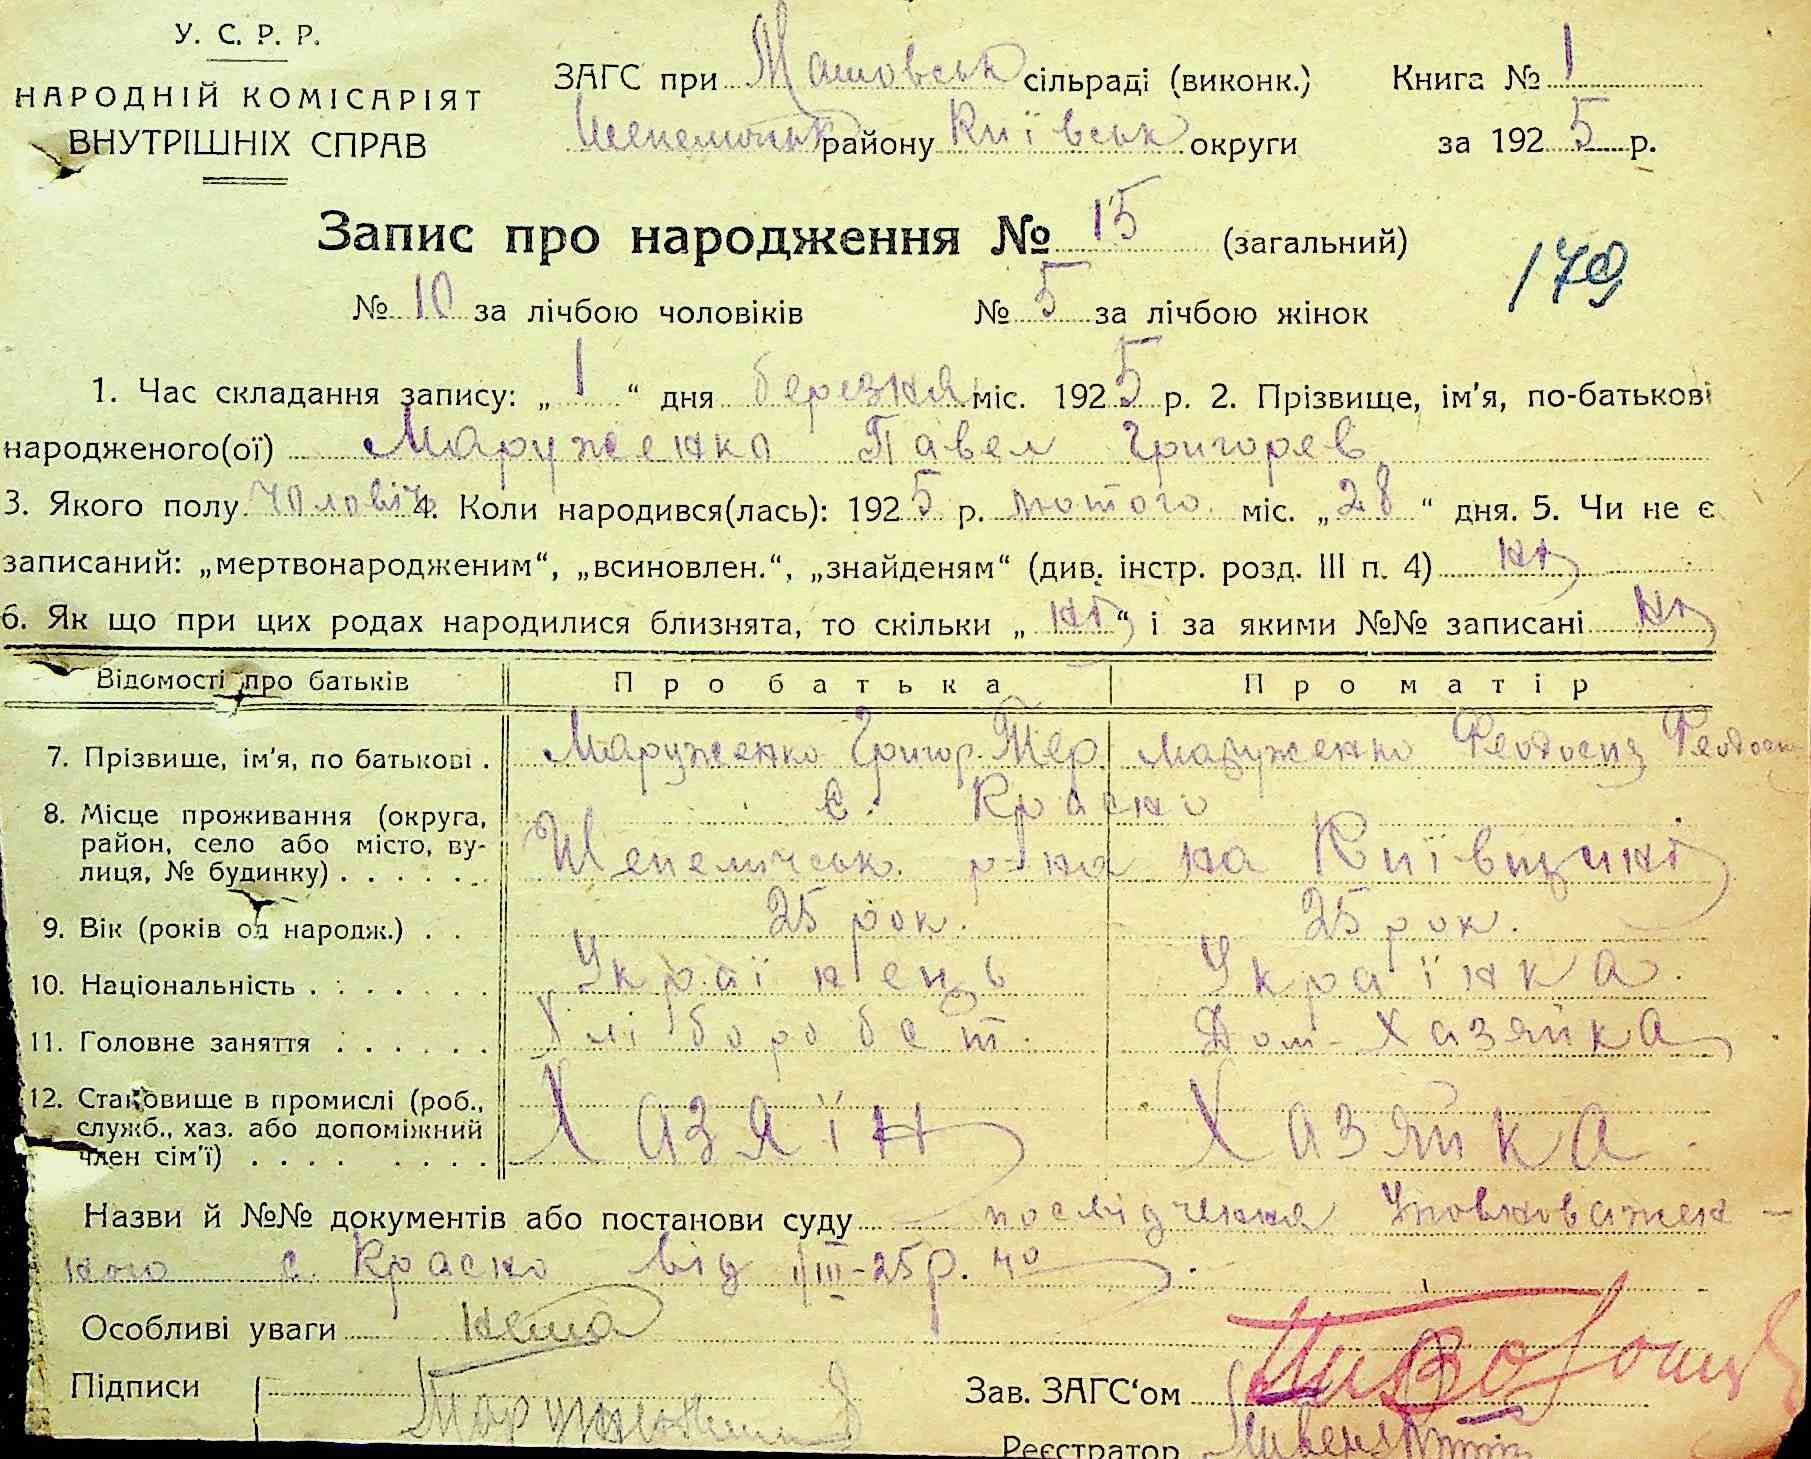 У. С. Р. Р.
НАРОДНІЙ КОМІСАРІЯТ
ВНУТРІШНІХ СПРАВ
ЗАГС при Машовськ сільраді (виконк.)
Шепелицьк району Київськ округи
Книга № 1
за 1925 р.
Запис про народження № 15 (загальний)
179
№ 10 за лічбою чоловіків № 5 за лічбою жінок
1. Час складання запису: „ 1 “ дня березня міс. 1925 р. 2. Прізвище, ім'я, по-батькові
народженого(ої) Маруженко Павел Григорев
3. Якого полу чоловіч 4. Коли народився(лась): 1925 р. лютого міс. „ 28 “ дня. 5. Чи не є
записаний: „мертвонародженим“, „всиновлен.“, „знайденям“ (див. інстр. розд. III п. 4) ні
6. Як що при цих родах народилися близнята, то скільки „ ні “ і за якими №№ записані ні
Відомості про батьків Про батька Про матір
7. Прізвище, ім'я, по батькові . Маруженко Григор. Тер. Маруженко Феодосия
8. Місце проживання (округа, с. Красно
район, село або місто, ву- Шепеличськ. р-на на Київщині
лиця, № будинку) . . . . . .
9. Вік (років од народж.) . . 25 рок. 25 рок.
10. Національність . . . . . . . Українець Українка.
11. Головне заняття . . . . . . Хлібороб Дом-Хазяйка
12. Становище в промислі (роб., Хазяїн Хазяйка
служб., хаз. або допоміжний
член сім'ї) . . . . . . . .
Назви й №№ документів або постанови суду посвідчення Уповноважен-
ного с. Красно від 1/III-25р.
Особливі уваги нема
Підписи
Зав. ЗАГС'ом
Реєстратор